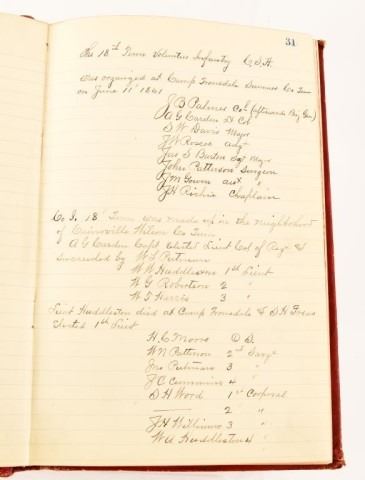 31
The 18th Tenn Volunteer Infantry C.S.A.
was organized at Camp Trousdale Sumner Co Tenn
on June 11 1861
J B Palmer Col (afterwards Brig Gen)
A G Carden Lt Col
S W Davis Major
J W Roscoe Adg
Jas S Barton Sgt Major
John Patterson Surgeon
J M Gowen ass "
J H Richie Chaplain
Co I. 18 Tenn was made up in the neighborhood
of Cainsville Wilson Co Tenn
A G Carden Capt elected Lieut Col of Regt &
succeeded by W P
W W Huddleston 1st Lieut
W G Robertson 2 "
W T Harris 3 "
Lieut Huddleston died at Camp Trousdale & D H
elected 1st Lieut
H C Moore O S.
W N Patterson 2nd Sergt
Jno 3 "
J C Cummins 4 "
D H Wood 1st Corporal
2 "
J H Williams 3 "
W A Huddleston 4 "